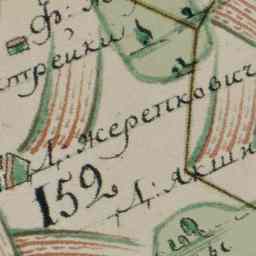 Ф:
стрейки
Д: Жерепкович
152
Д: Якши